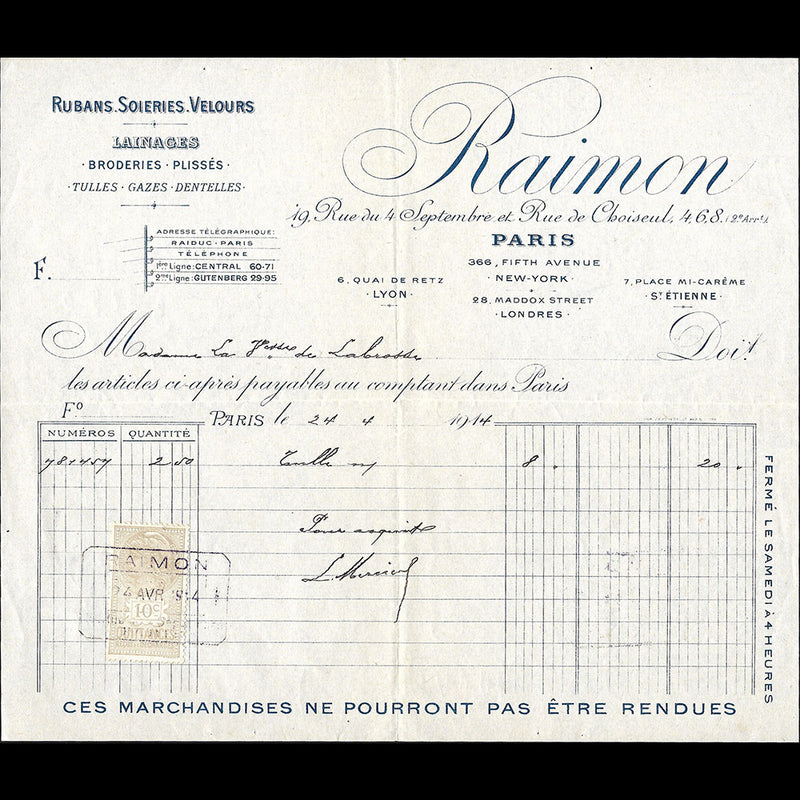 RUBANS. SOIERIES. VELOURS
LAINAGES
· BRODERIES · PLISSÉS ·
· TULLES · GAZES · DENTELLES ·
ADRESSE TÉLÉGRAPHIQUE:
RAIDUC - PARIS
TÉLÉPHONE
1ère Ligne: CENTRAL 60-71
2me Ligne: GUTENBERG 29-95
F.
Raimon
19, Rue du 4 Septembre et Rue de Choiseul, 4, 6, 8. (2e Arrt).
PARIS
366, FIFTH AVENUE
· NEW-YORK ·
28, MADDOX STREET
· LONDRES ·
6, QUAI DE RETZ
· LYON ·
7, PLACE MI-CARÊME
· ST ÉTIENNE ·
Madame La Vtesse de Labrosse Doit
les articles ci-après payables au comptant dans Paris
Fo
PARIS le 24 4 1914
NUMÉROS QUANTITÉ
781457 2 50 Tulle n 8 " 20 "
Pour acquit
L. Mercier
RAIMON
24 AVR 1914
10c
QUITTANCES
FERMÉ LE SAMEDI À 4 HEURES
CES MARCHANDISES NE POURRONT PAS ÊTRE RENDUES